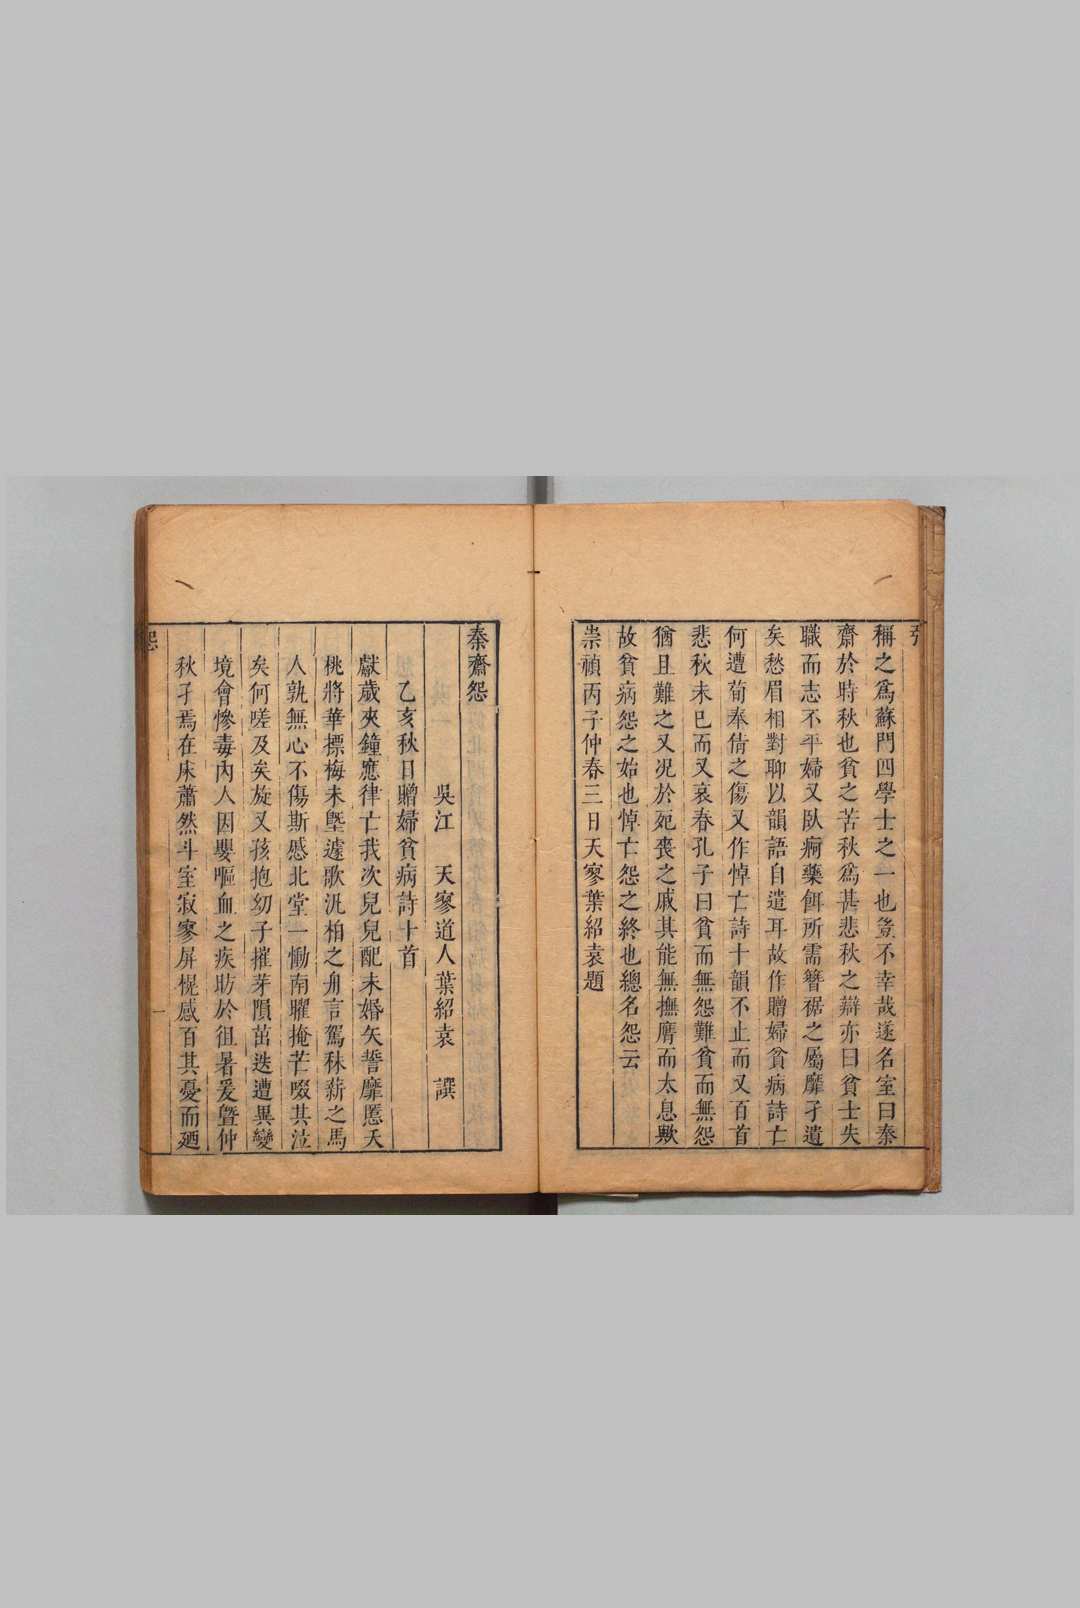 稱之爲蘇門四學士之一也豈不幸哉遂名室曰秦
齋於時秋也貧之苦秋爲甚悲秋之辯亦曰貧士失
職而志不平婦又臥痾藥餌所需簪裾之屬靡孑遺
矣愁眉相對聊以韻語自遣耳故作贈婦貧病詩亡
何遭荀奉倩之傷又作悼亡詩十韻不止而又百首
悲秋未已而又哀春孔子曰貧而無怨難貧而無怨
猶且難之又况於死喪之戚其能無撫膺而太息歟
故貧病怨之始也悼亡怨之終也總名怨云
崇禎丙子仲春三日天寥葉紹袁題
秦齋怨
吳江 天寥道人葉紹袁 譔
乙亥秋日贈婦貧病詩十首
獻歲夾鐘應律亡我次兒兒配未婚矢誓靡慝天
桃將華摽梅未塈遽歌汎柏之舟言駕秣薪之馬
人孰無心不傷斯慼北堂一慟南暉掩芒啜其泣
矣何嗟及矣旋又孩抱幼子摧芽隕茁迭遭異變
境會慘毒內人因嬰嘔血之疾昉於徂暑爰曁仲
秋孑焉在床蕭然斗室寂寥屏幌感百其憂而廼
一